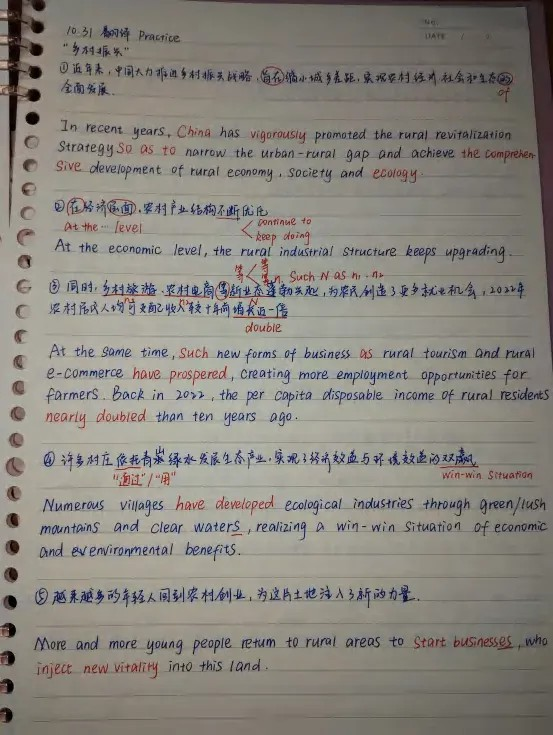 No.
DATE / /
10.31 翻译 Practice
"乡村振兴"
①近年来，中国大力推进乡村振兴战略，旨在缩小城乡差距，实现农村经济、社会和生态的
全面发展.
of
In recent years, China has vigorously promoted the rural revitalization
Strategy So as to narrow the urban-rural gap and achieve the comprehen-
sive development of rural economy, society and ecology.
②在经济层面，农村产业结构不断优化
at the … level
continue to
keep doing
At the economic level, the rural industrial structure keeps upgrading.
等
等
n. Such N as n₁、n₂
③同时，乡村旅游、农村电商等新业态蓬勃兴起，为农民创造了更多就业机会，2022年
农村居民人均可支配收入较十年前增长近一倍
double
At the same time, such new forms of business as rural tourism and rural
e-commerce have prospered, creating more employment opportunities for
farmers. Back in 2022, the per capita disposable income of rural residents
nearly doubled than ten years ago.
④许多村庄依托青山绿水发展生态产业，实现了经济效益与环境效益的双赢
"通过"/"用"
win-win situation
Numerous villages have developed ecological industries through green/lush
mountains and clear waters, realizing a win-win situation of economic
and environmental benefits.
⑤越来越多的年轻人回到农村创业，为这片土地注入了新的力量.
More and more young people return to rural areas to start businesses, who
inject new vitality into this land.